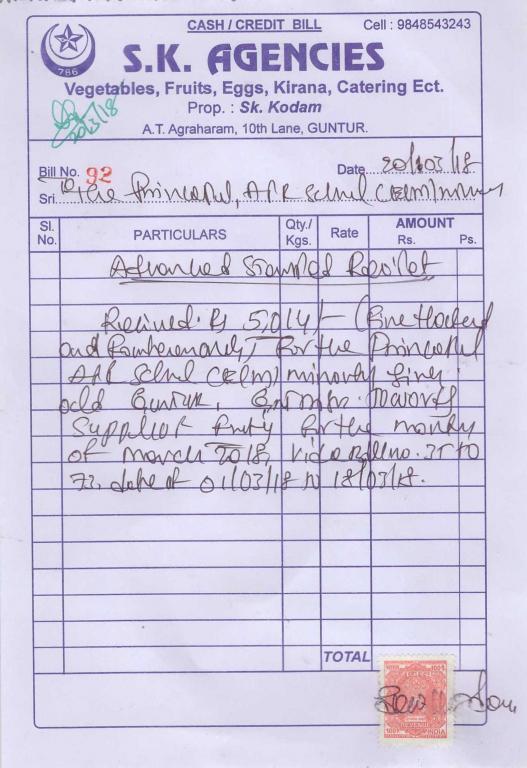 CASH / CREDIT BILL
Cell : 9848543243
786
S.K. AGENCIES
Vegetables, Fruits, Eggs, Kirana, Catering Ect.
Prop. : Sk. Kodam
20/3/18
A.T. Agraharam, 10th Lane, GUNTUR.
Bill No. 92
Date 20/03/18
Sri To the Principal, APR School (E/M)
Sl. No.
PARTICULARS
Qty./ Kgs.
Rate
AMOUNT
Rs. Ps.
Advanced Stamped
Received Rs 5,014/- (Five
and for the Principal
APR School (E/M) minority
old Guntur, Guntur. Towards
for the month
of March 2018, Vide Bill no. 35 to
73. date of 01/03/18 to 18/03/18.
TOTAL
REVENUE
INDIA